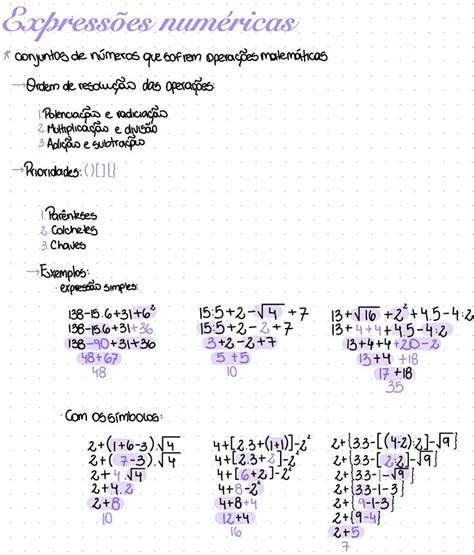 Expressões numéricas
* conjuntos de números que sofrem operações matemáticas
→ Ordem de resolução das operações:
1. Potenciação e radiciação
2. Multiplicação e divisão
3. Adição e subtração
→ Prioridades: ( ) [ ] { }
1. Parênteses
2. Colchetes
3. Chaves
→ Exemplos:
• expressão simples:
138-15.6+31+6²
138-15.6+31+36
138-90+31+36
48+67
48
15:5+2-√4+7
15:5+2-2+7
3+2-2+7
5+5
10
13+√16+2²+4.5-4:2
13+4+4+4.5-4:2
13+4+4+20-2
13+4+18
17+18
35
• Com os símbolos:
2+(1+6-3).√4
2+(7-3).√4
2+4.√4
2+4.2
2+8
10
4+[2.3+(1+1)]-2²
4+[2.3+2]-2²
4+[6+2]-2²
4+8-2²
4+8-4
12+4
16
2+{3.3-[(4-2):2]-√9}
2+{3.3-[2:2]-√9}
2+{3.3-1-√9}
2+{3.3-1-3}
2+{9-1-3}
2+{9-4}
2+5
7